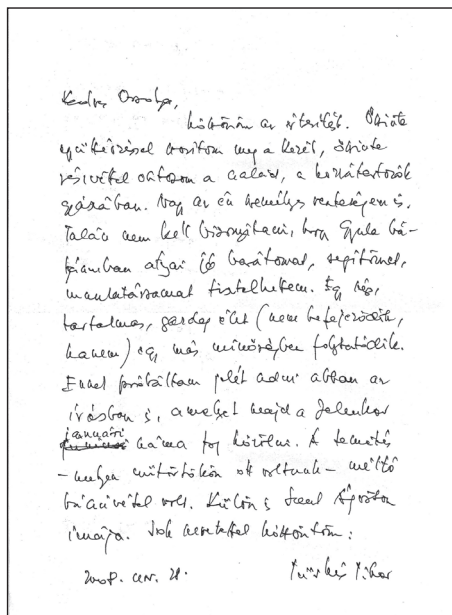 Kedves Orsolya,
köszönöm az értesítést. Őszinte
együttérzéssel szorítom meg a kezét, őszinte
részvéttel osztozom a család, a hozzátartozók
gyászában. Nagy az én személyes veszteségem is.
Talán nem kell bizonyítani, hogy Gyula bá-
tyámban atyai jó barátomat, segítőmet,
munkatársamat tisztelhettem. Egy szép,
tartalmas, gazdag élet (nem befejeződik,
hanem) egy más minőségben folytatódik.
Ennek próbáltam jelét adni abban az
írásban is, amelyet majd a Jelenkor
januári száma fog közölni. A temetés
– melyen mindketten ott voltunk – méltó
búcsúvétel volt. Külön is szép Ágoston
imája. Sok szeretettel köszöntöm:
Tüskés Tibor